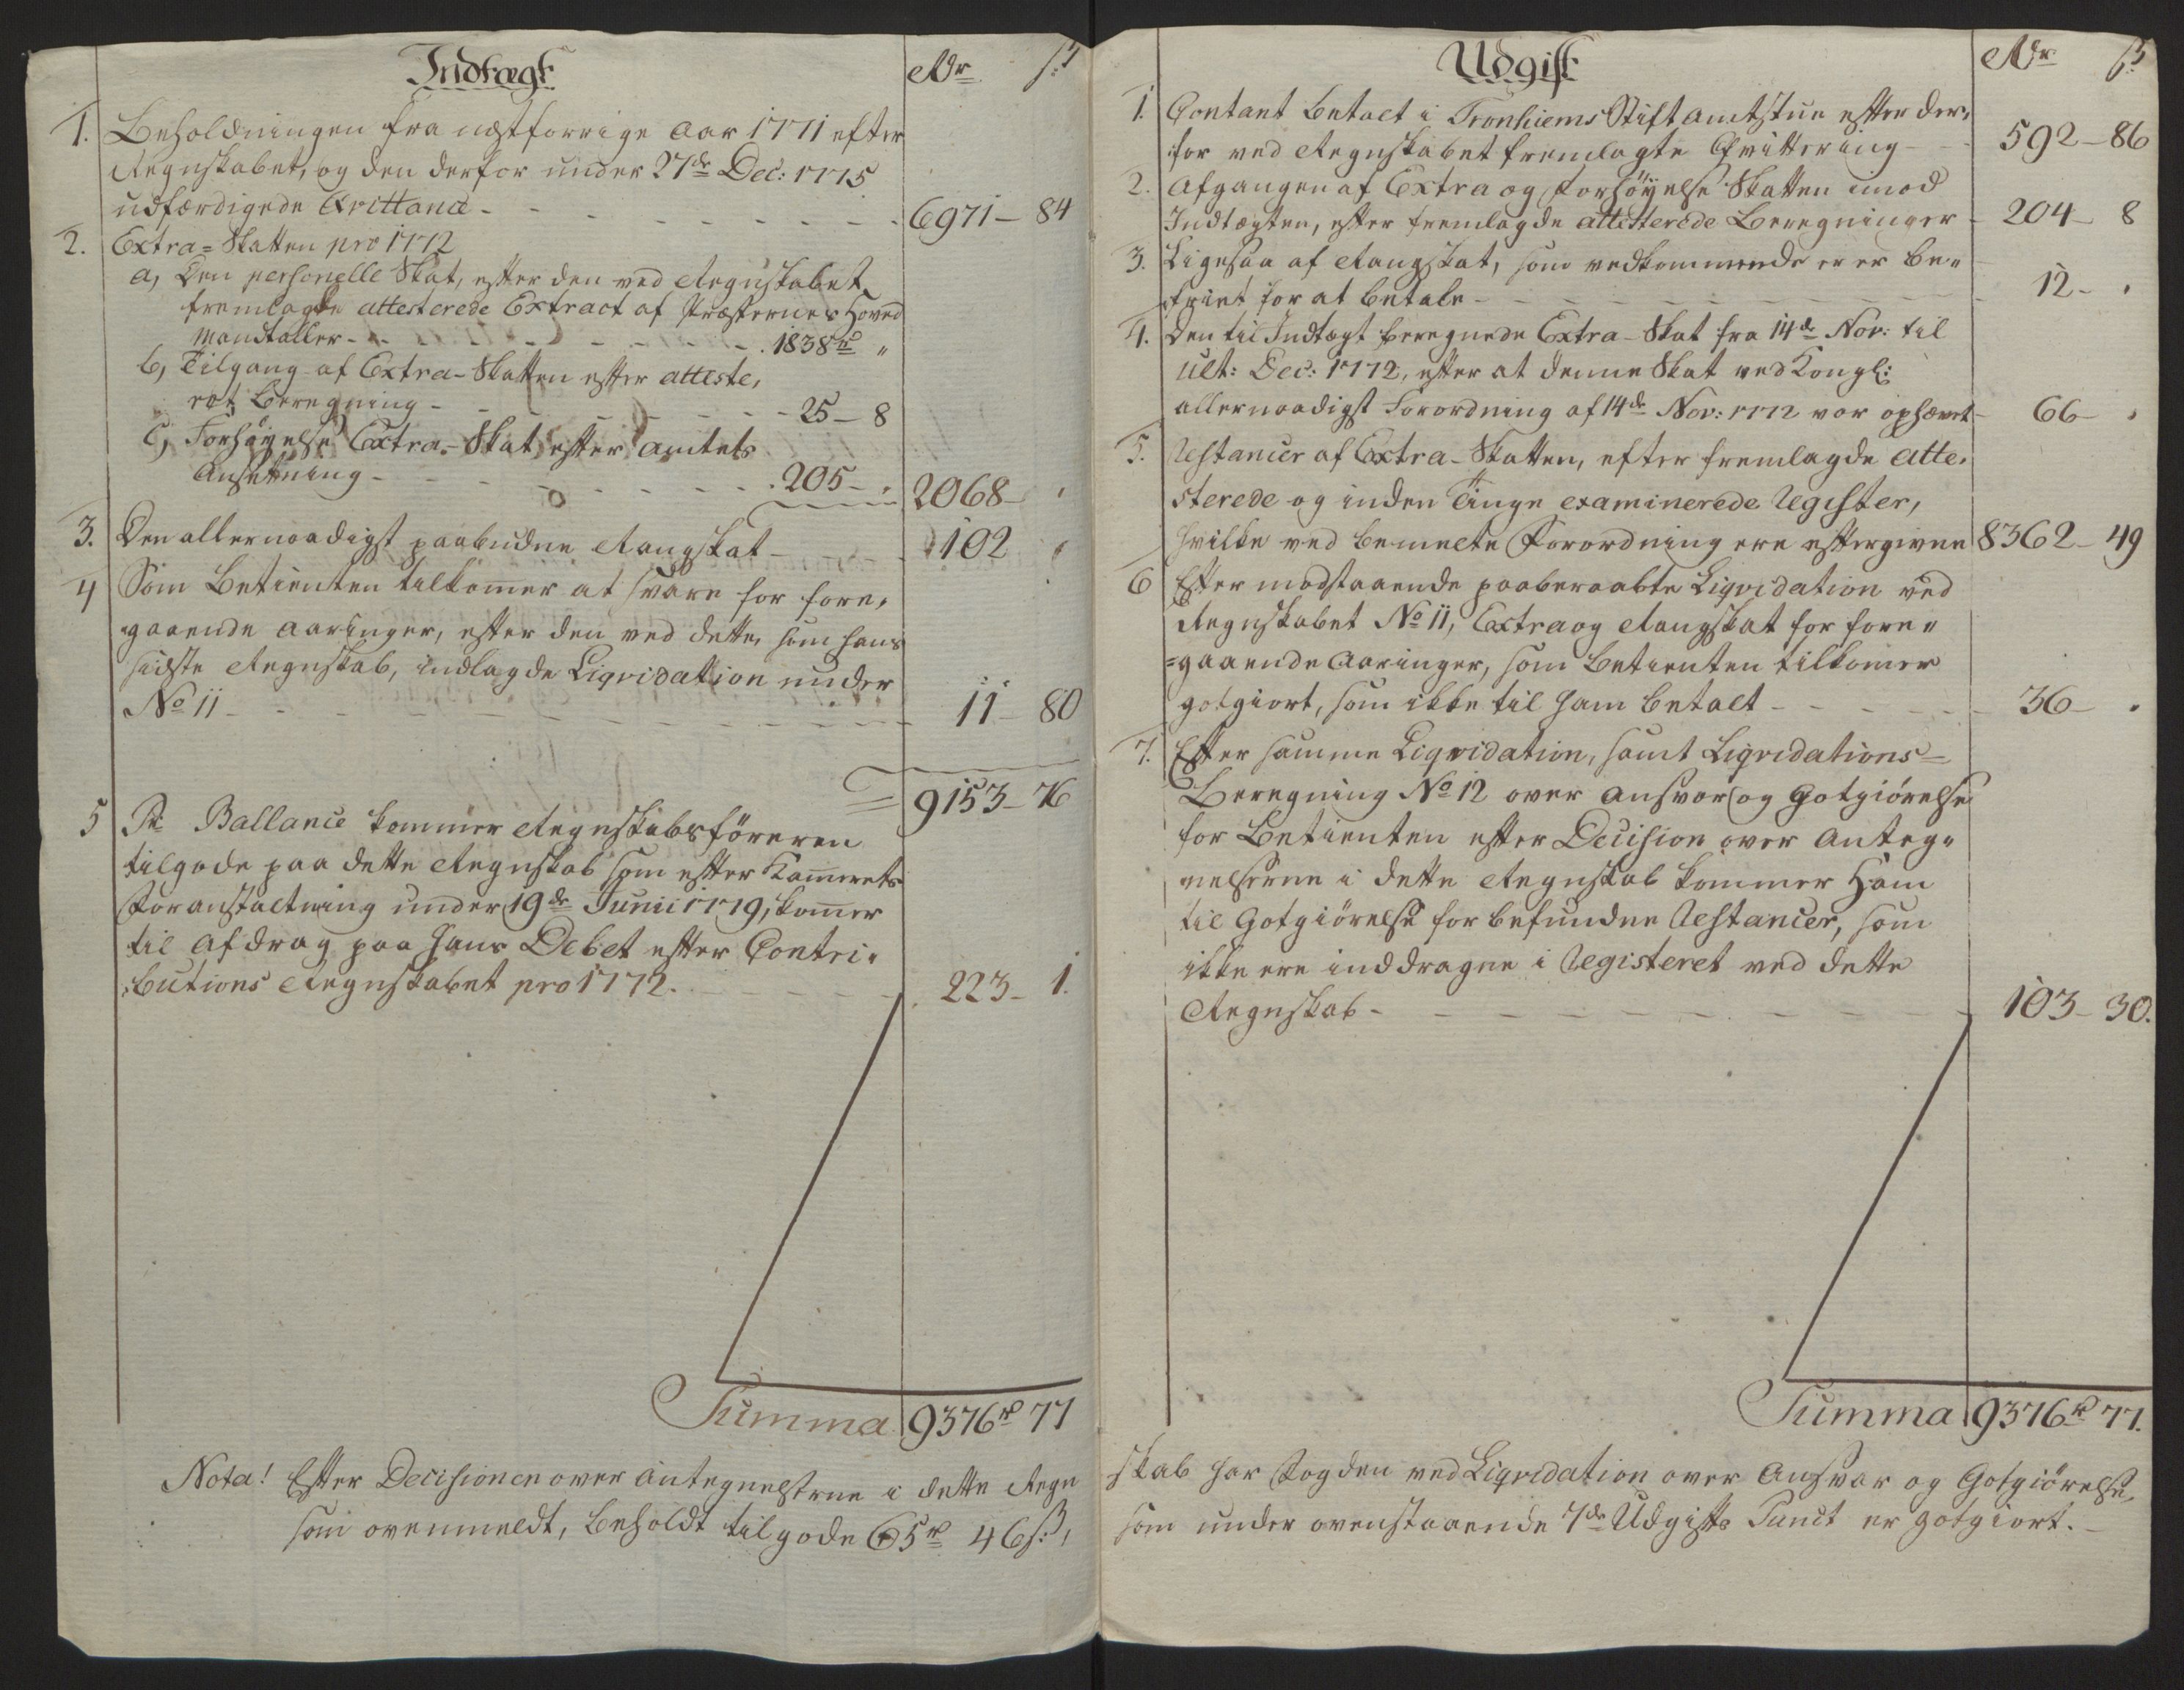 Indtægt
Rdr ß
1. Beholdningen fra nestforrige Aar 1771 efter
Regnskabet, og den derfor under 27de Dec: 1775
udfærdigede Qvittance - 6971 - 84
2. Extra-Skatten pro 1772
a, Den personelle Skat, efter den ved Regnskabet
fremlagte attesterede Extract af Præsternes Hoved
Mandtaller - 1838 rd "
b, Tilgang af Extra-Skatten efter atteste,
ret Beregning - 25 - 8
c, Forhøyelse Extra-Skat efter Amtets
Ansettning - 205 - " 2068 - "
3. Den allernaadigst paabudne Rangskat - 102 "
4 Som Betienten tilkommer at svare for fore,
gaaende Aaringer, efter den ved dette, som hans
sidste Regnskab, indlagde Liqvidation under
No 11 - 11 - 80
9153 - 76
5 Pr Ballance kommer Regnskabsføreren
tilgode paa dette Regnskab som efter Kammerets
Foranstaltning under 19de Junii 1779, kommer
til Afdrag paa hans Debet efter Contri,
butions Regnskabet pro 1772. - 223 - 1.
Summa 9376 rd 77
Nota! Efter Decisionen over Antegnelserne i dette Regn
som ovenmeldt, beholdt tilgode 65 rd 46 ß,
Udgift
Rdr ß
1. Contant betalt i Tronhiems Stiftamtstue efter der,
for ved Regnskabet fremlagte Qvittering - 592 - 86
2. Afgangen af Extra og Forhøyelse Skatten imod
Indtægten, efter fremlagde attesterede Beregninger - 204 - 8
3. Ligesaa af Rangskat, som vedkommende er er be,,
friet for at betale - 12 - "
4. Den til Indtægt beregnede Extra-Skat fra 14de Nov: til
ult: Dec: 1772, efter at denne Skat ved Kongl:
allernaadigst Forordning af 14de Nov: 1772 var ophævet - 66 - "
5. Restancer af Extra-Skatten, efter fremlagde atte,
sterede og inden Tinge examinerede Register,
hvilke ved bemelte Forordning ere eftergivne 8362 - 49
6 Efter modstaaende paaberaabte Liqvidation ved
Regnskabet No 11, Extra og Rangskat for fore,,
=gaaende Aaringer, som Betienten tilkommer
gotgiort, som ikke til ham betalt - 36 - "
7. Efter samme Liqvidation, samt Liqvidations-
Beregning No 12 over Ansvar og Gotgiörelse
for Betienten efter Decision over Anteg,,
nelserne i dette Regnskab kommer Ham
til Gotgiörelse for befundne Restancer, som
ikke ere inddragne i Registeret ved dette
Regnskab - 103 - 30.
Summa 9376 rd 77.
skab har Fogden ved Liqvidation over Ansvar og Gotgiörelse,
som under ovenstaaende 7de Udgifts Punct er gotgiort. -